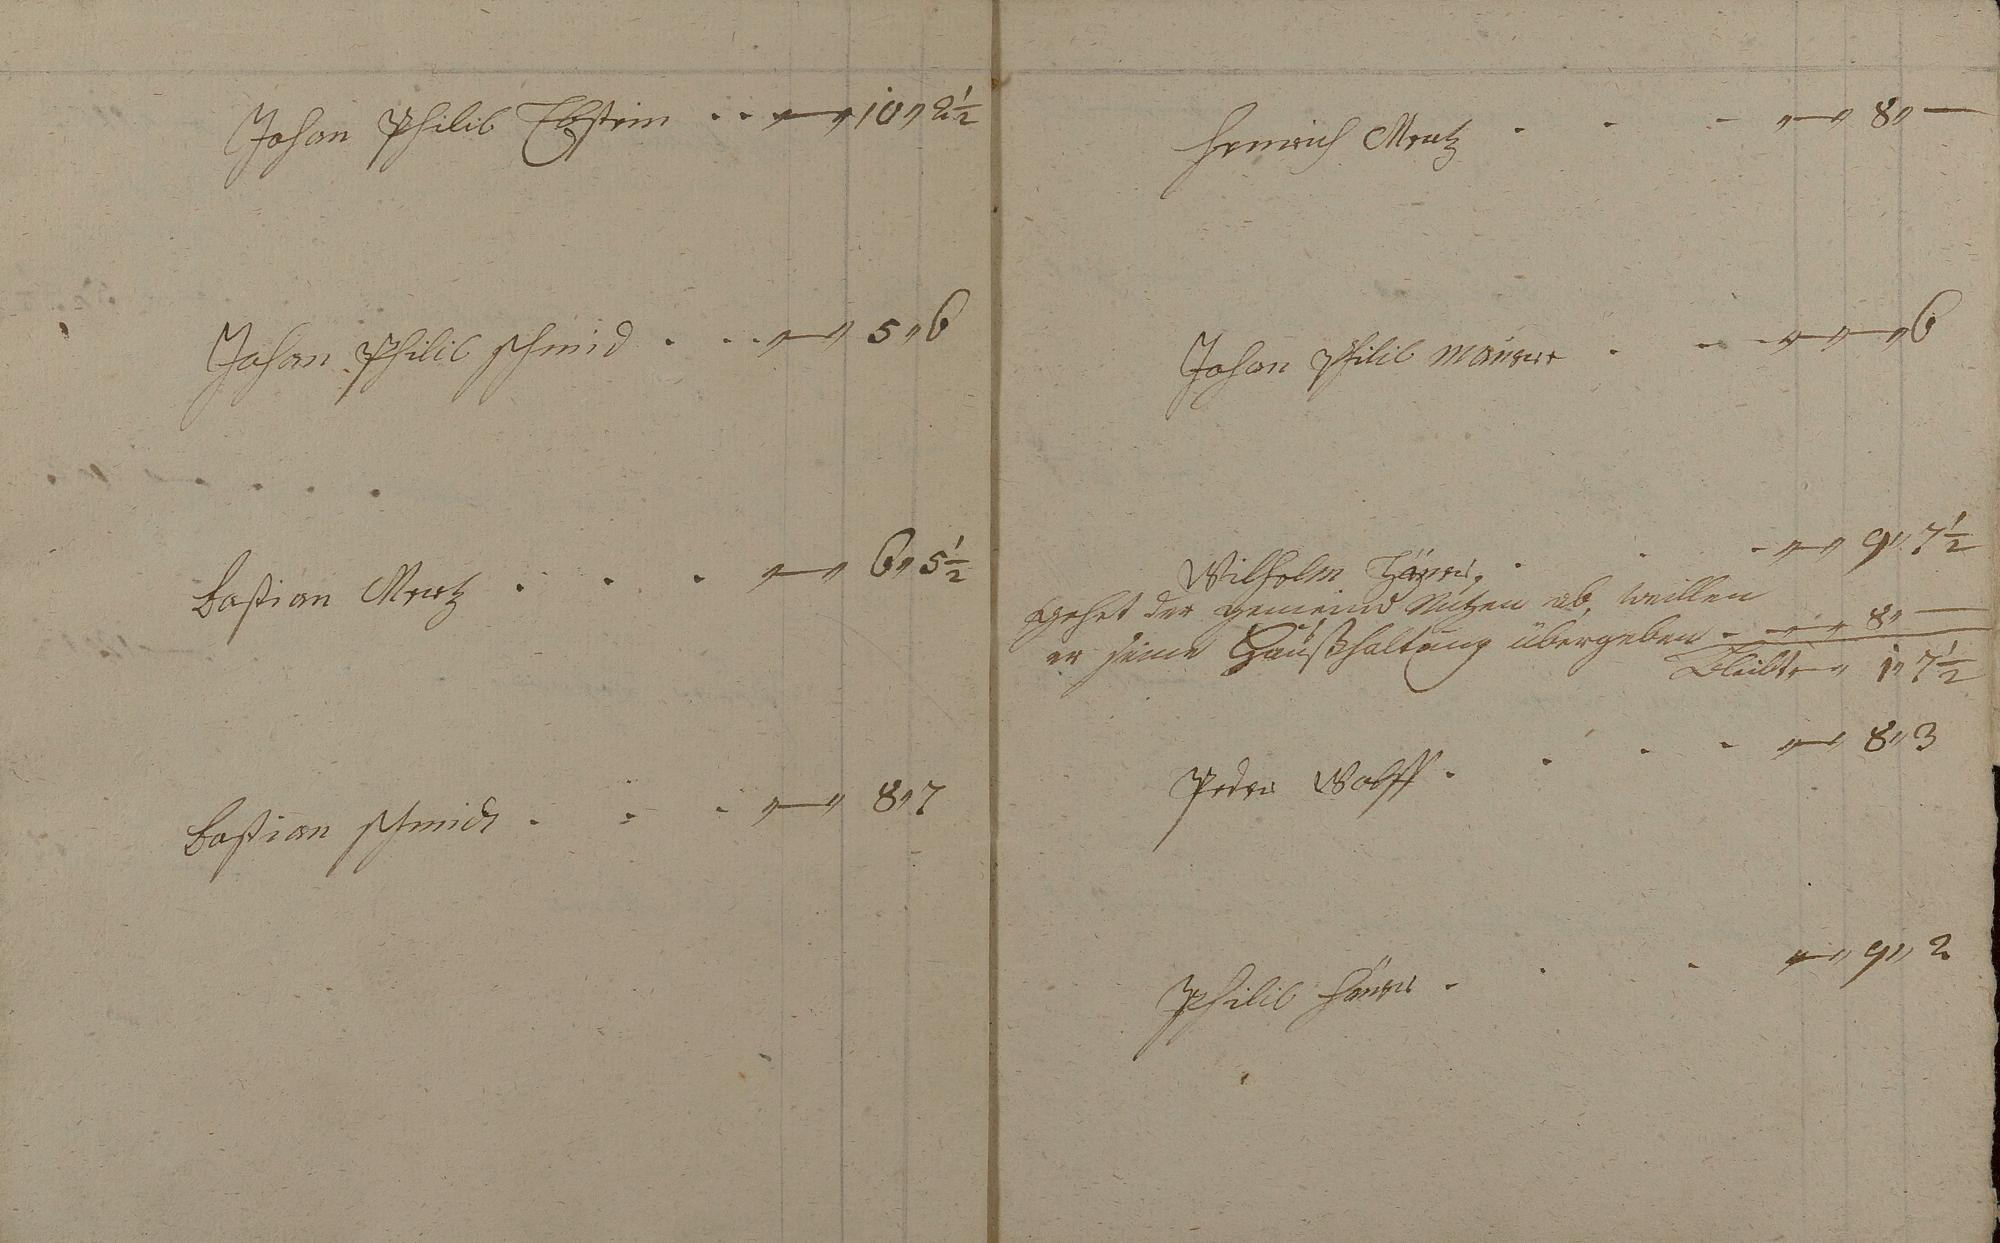 Johan Philib Ebstein . . „—„ 10„ 2½
Johan Philib schmid . . . „—„ 5„ 6
bastian Mertz . . . „—„ 6„ 5½
bastian schmidt . . . „—„ 8„ 7
henrich Mertz . . . „—„ 8„ —
Johan Philib Maurer . . . „—„—„ 6
Wilhelm . . . „—„ 9„ 7½
gehet der gemeind Nutzen ab, weillen
er seine Haußhaltung übergeben . „—„ 8„ —
Bleibt „—„ 1„ 7½
Peter Wolff . . . . „—„ 8„ 3
Philib . . . „—„ 9„ 2